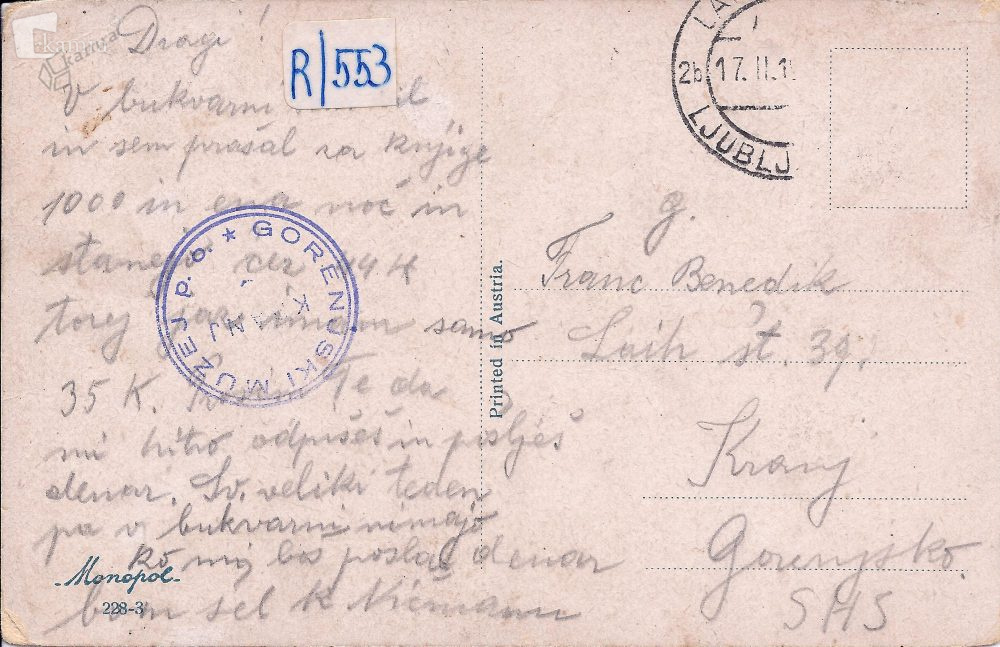 Dragi!
R/553
V bukvarni
in sem prašal za knjige
1000 in ena noč in
stanejo čez 44 K
torej jaz imam samo
35 K. Prosim Te da
mi hitro odpišeš in pošlješ
denar. Sv. veliki teden
pa v bukvarni nimajo
ko mi boš poslal denar
bom šel k
GORENJSKI MUZEJ p. o. ★
KRANJ
-Monopol-
228-3
Printed in Austria.
2b 17. II. 1
LJUBLJ
g.
Franc Benedik
Laih št. 39,
Kranj
Gorenjsko.
SHS